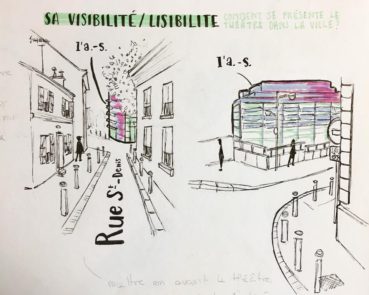 SA VISIBILITÉ/LISIBILITE
COMMENT SE PRÉSENTE LE
THÉÂTRE DANS LA VILLE?
l'a.-S.
l'a.-S.
Rue St-Denis
mettre en avant le théâtre